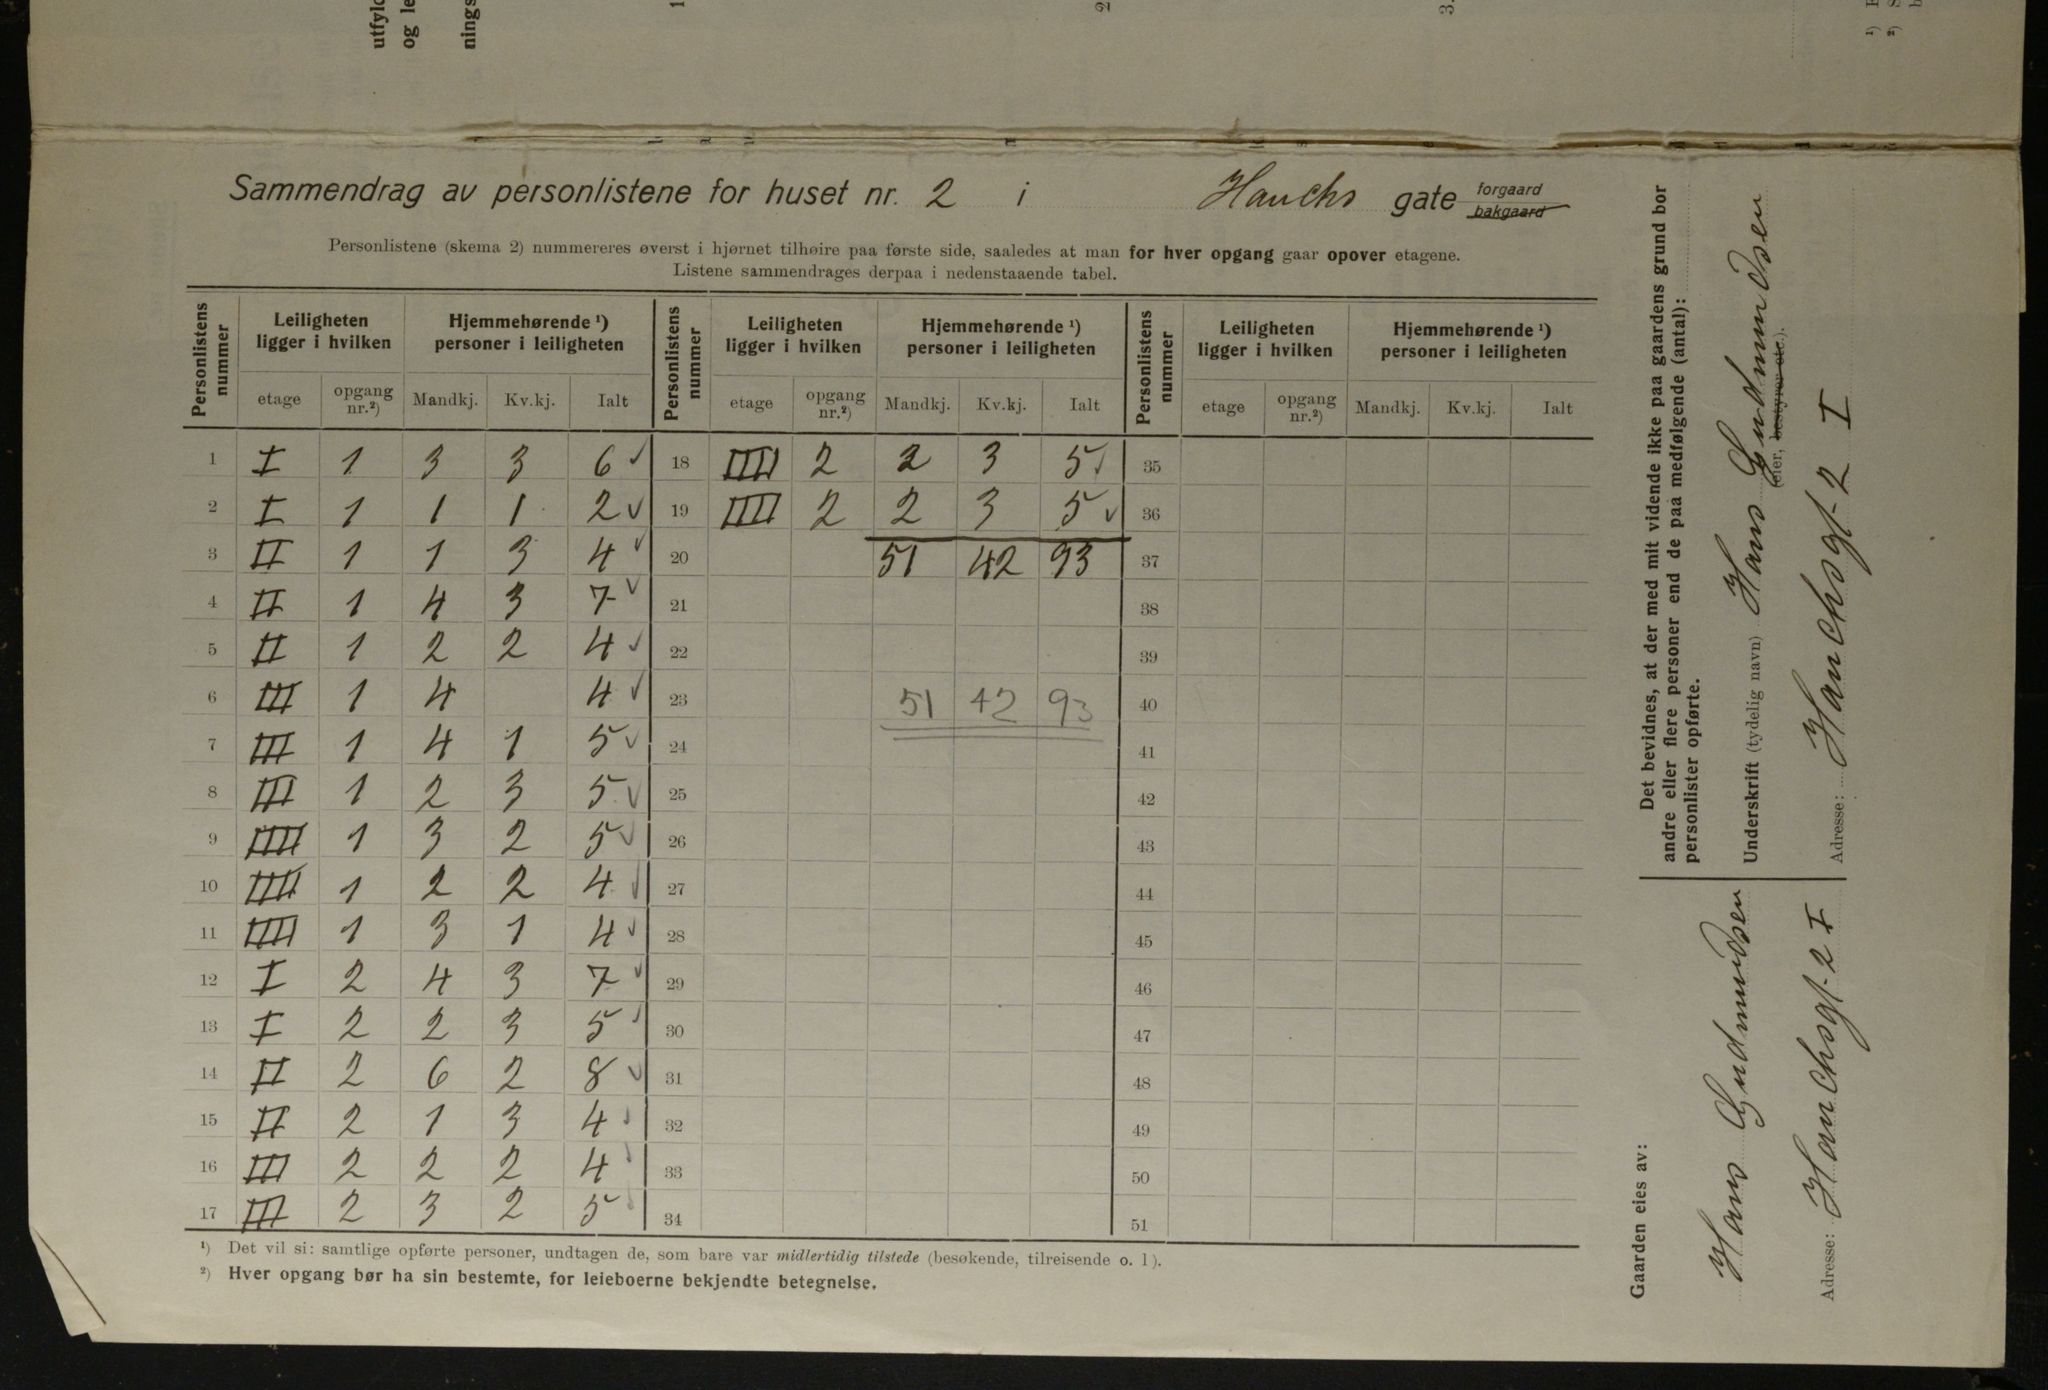 utfyld
og le
nings
1
2
3.
Sammendrag av personlistene for huset nr. 2 i Hauchs gate forgaard
bakgaard
Personlistene (skema 2) nummereres øverst i hjørnet tilhøire paa første side, saaledes at man for hver opgang gaar opover etagene.
Listene sammendrages derpaa i nedenstaaende tabel.
Personlistens nummer | Leiligheten ligger i hvilken | Hjemmehørende ¹) personer i leiligheten | Personlistens nummer | Leiligheten ligger i hvilken | Hjemmehørende ¹) personer i leiligheten | Personlistens nummer | Leiligheten ligger i hvilken | Hjemmehørende ¹) personer i leiligheten
etage | opgang nr.²) | Mandkj. | Kv.kj. | Ialt | etage | opgang nr.²) | Mandkj. | Kv.kj. | Ialt | etage | opgang nr.²) | Mandkj. | Kv.kj. | Ialt
1 I 1 3 3 6 ✓ 18 IIII 2 2 3 5 ✓ 35
2 I 1 1 1 2 ✓ 19 IIII 2 2 3 5 ✓ 36
3 II 1 1 3 4 ✓ 20 51 42 93 37
4 II 1 4 3 7 ✓ 21 38
5 II 1 2 2 4 ✓ 22 39
6 III 1 4 4 ✓ 23 51 42 93 40
7 III 1 4 1 5 ✓ 24 41
8 III 1 2 3 5 ✓ 25 42
9 IIII 1 3 2 5 ✓ 26 43
10 IIII 1 2 2 4 ✓ 27 44
11 IIII 1 3 1 4 ✓ 28 45
12 I 2 4 3 7 ✓ 29 46
13 I 2 2 3 5 ✓ 30 47
14 II 2 6 2 8 ✓ 31 48
15 II 2 1 3 4 ✓ 32 49
16 III 2 2 2 4 ✓ 33 50
17 III 2 3 2 5 ✓ 34 51
¹) Det vil si: samtlige opførte personer, undtagen de, som bare var midlertidig tilstede (besøkende, tilreisende o. l).
²) Hver opgang bør ha sin bestemte, for leieboerne bekjendte betegnelse.
Det bevidnes, at der med mit vidende ikke paa gaardens grund bor
andre eller flere personer end de paa medfølgende (antal):
personlister opførte.
Underskrift (tydelig navn) Hans Gudmundsen
(eier, bestyrer etc.).
Adresse: Hauchsgt. 2 I
Gaarden eies av:
Hans Gudmundsen
Adresse: Hauchsgt. 2 I